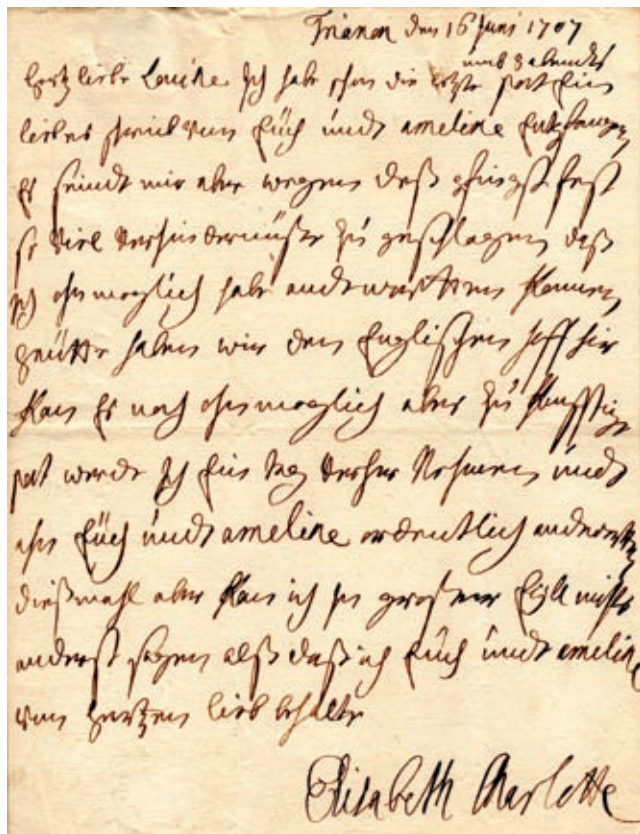 Trianon den 16 Juni 1707
umb 8 abendts
hertzliebe Louise Ich habe schon die letzte post Ein
liebes schreiben von Eüch undt ameline Entpfangen
Es seindt mir aber wegen daß pfingst fest
so viel verhindernüße zu geschlagen daß
Ich ohnmoglich habe andtwortten können
heütte haben wir den Englischen hoff hir
kan Es noch ohnmoglich aber zu künfftige
post werde Ich Ein tag vorher Nehmen undt
ahn Eüch undt ameline ordentlich andtwortten
dießmahl aber kan ich in großer Eyll nichts
anderst sagen alß daß ich Eüch undt ameline
von hertzen lieb behalte
Elisabeth Charlotte